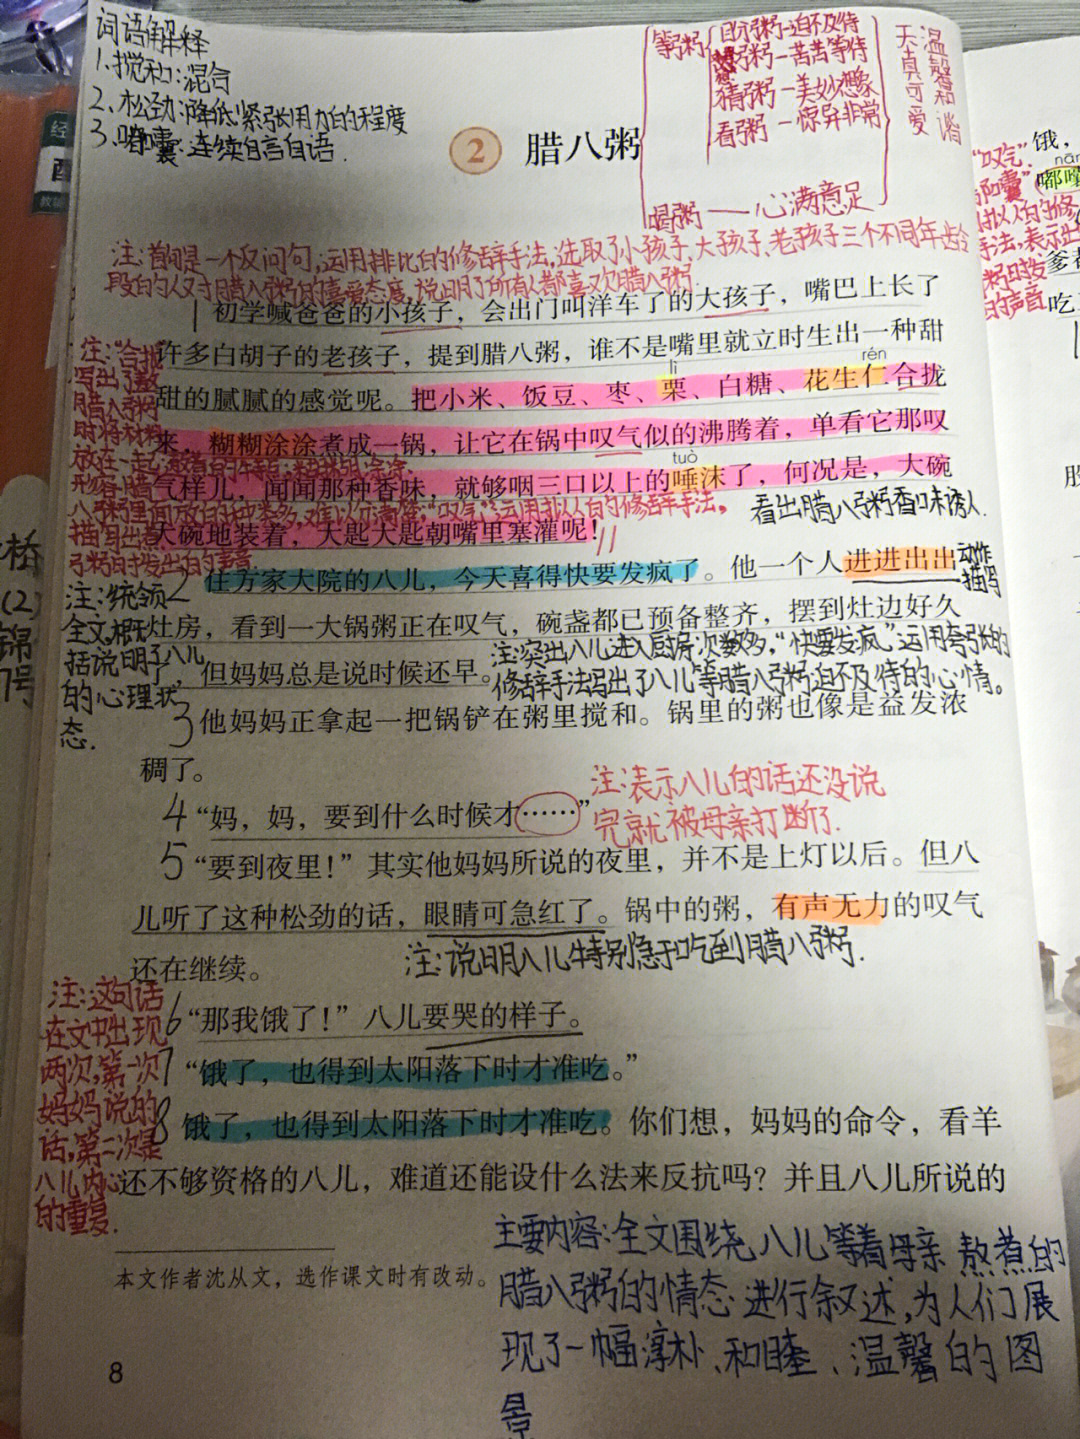 词语解释
1.搅和:混合
2.松劲:降低紧张用力的程度
3.嘟囔:连续自言自语.
2 腊八粥
等粥
盼粥—迫不及待
粥—苦苦等待
猜粥—美妙想象
看粥—惊异非常
喝粥——心满意足
天真可爱
温馨和谐
注:首句是一个反问句,运用排比的修辞手法,选取了小孩子、大孩子、老孩子三个不同年龄
段的人对腊八粥的喜爱态度,说明了所有人都喜欢腊八粥.
1 初学喊爸爸的小孩子，会出门叫洋车了的大孩子，嘴巴上长了
许多白胡子的老孩子，提到腊八粥，谁不是嘴里就立时生出一种甜
lì rén
甜的腻腻的感觉呢。把小米、饭豆、枣、栗、白糖、花生仁合拢
来，糊糊涂涂煮成一锅，让它在锅中叹气似的沸腾着，单看它那叹
tuò
气样儿，闻闻那种香味，就够咽三口以上的唾沫了，何况是，大碗
大碗地装着，大匙大匙朝嘴里塞灌呢！
注:“合拢”
写出了熬
腊八粥
时将材料
放在一起
八粥里面放的种类多,难以分清楚“叹气”运用拟人的修辞手法,
描写出着
粥时发出的声音
看出腊八粥香味诱人.
2 住方家大院的八儿，今天喜得快要发疯了。他一个人进进出出
动作
描写
灶房，看到一大锅粥正在叹气，碗盏都已预备整齐，摆到灶边好久
了，但妈妈总是说时候还早。
注:统领
全文,概
括说明了八儿
的心理状
态.
注:突出八儿进入厨房次数多,“快要发疯”运用夸张的
修辞手法写出了八儿等腊八粥迫不及待的心情。
3 他妈妈正拿起一把锅铲在粥里搅和。锅里的粥也像是益发浓
稠了。
4 “妈，妈，要到什么时候才……”
注:表示八儿的话还没说
完就被母亲打断了.
5 “要到夜里！”其实他妈妈所说的夜里，并不是上灯以后。但八
儿听了这种松劲的话，眼睛可急红了。锅中的粥，有声无力的叹气
还在继续。
注:说明八儿特别急于吃到腊八粥.
6 “那我饿了！”八儿要哭的样子。
7 “饿了，也得到太阳落下时才准吃。”
8 饿了，也得到太阳落下时才准吃。你们想，妈妈的命令，看羊
还不够资格的八儿，难道还能设什么法来反抗吗？并且八儿所说的
注:这句话
在文中出现
两次,第一次
妈妈说的
话,第二次是
八儿内心
的重复.
本文作者沈从文，选作课文时有改动。
主要内容:全文围绕八儿等着母亲熬煮的
腊八粥的情态进行叙述,为人们展
现了一幅淳朴、和睦、温馨的图
景
8
饿，
嘟囔
“叹气”
手法,表示出
的声音
吃
桥
(2)
锦
号